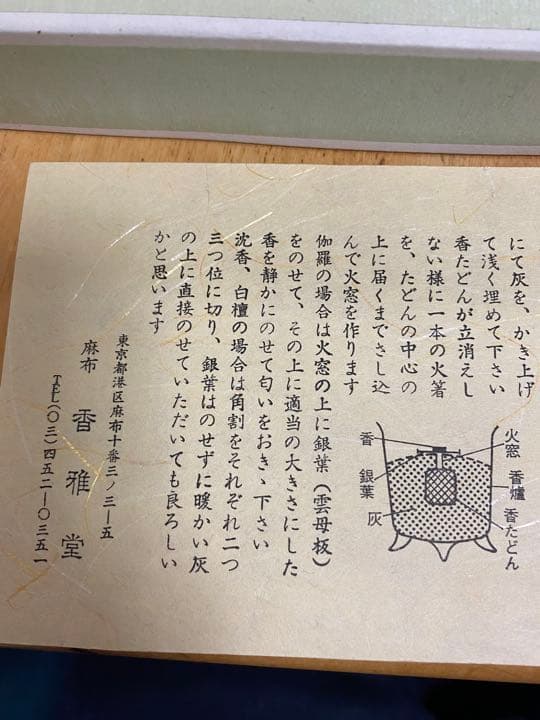 にて灰を、かき上げ
て浅く埋めて下さい
香たどんが立消えし
ない様に一本の火箸
を、たどんの中心の
上に届くまでさし込
んで火窓を作ります
伽羅の場合は火窓の上に銀葉(雲母板)
をのせて、その上に適当の大きさにした
香を静かにのせて匂いをおきゝ下さい
沈香、白檀の場合は角割をそれぞれ二つ
三つ位に切り、銀葉はのせずに暖かい灰
の上に直接のせていただいても良ろしい
かと思います
火窓
香爐
香たどん
香
銀葉
灰
東京都港区麻布十番三ノ三―五
麻布 香雅堂
TEL(〇三)四五二―〇三五一